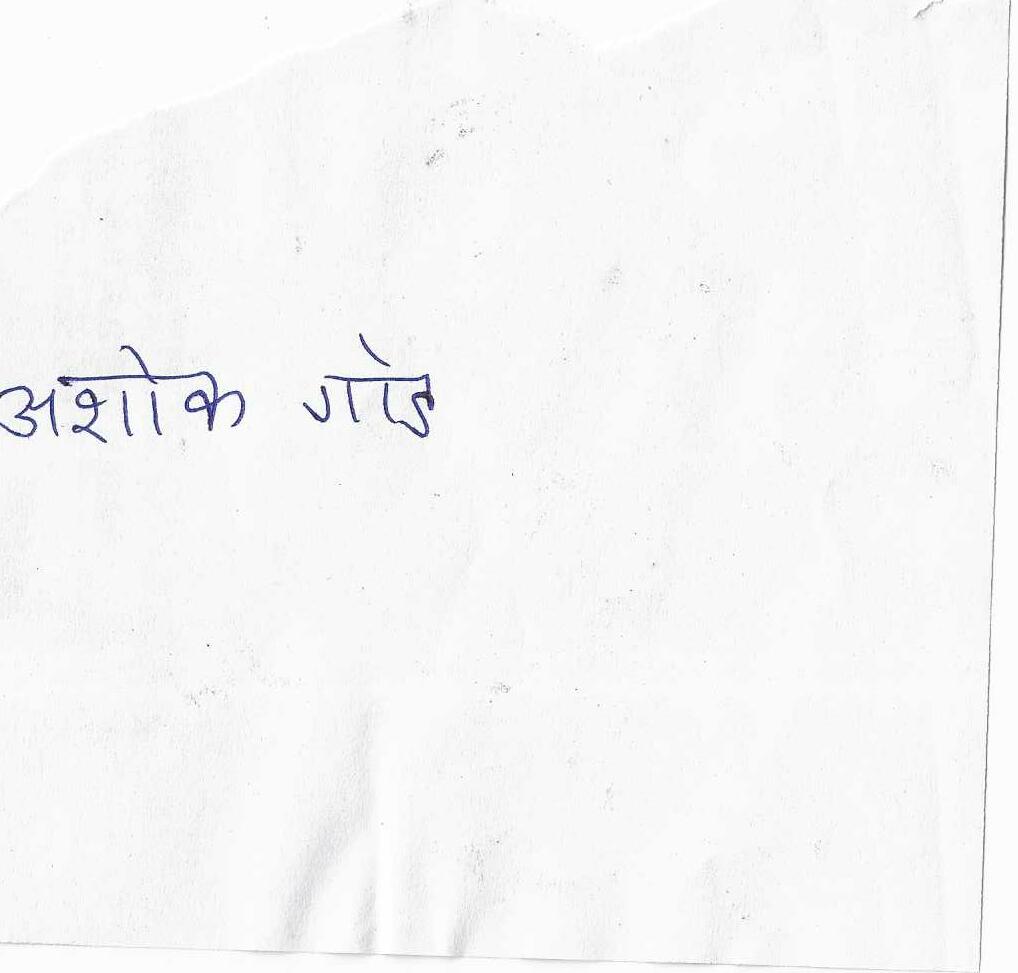 अशोक गोड